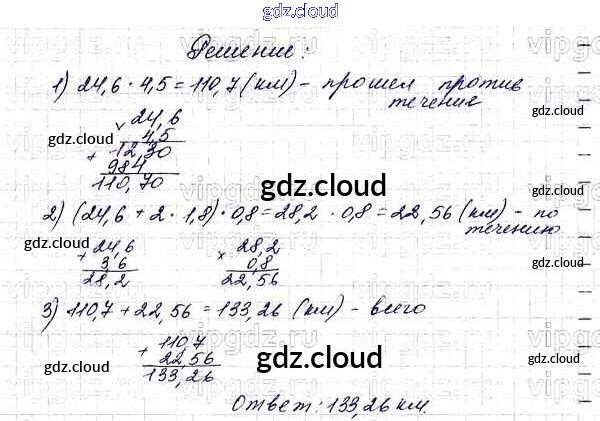 gdz.cloud
Решение:
1) 24,6 · 4,5 = 110,7 (км) - прошел против
течение
gdz.cloud
× 24,6
4,5
gdz.cloud
+ 12 30
984
110,70
gdz.cloud
2) (24,6 + 2 · 1,8) · 0,8 = 28,2 · 0,8 = 22,56 (км) - по
течению
gdz.cloud
+ 24,6
3,6
28,2
× 28,2
0,8
22,56
gdz.cloud
3) 110,7 + 22,56 = 133,26 (км) - всего
+ 110,7
22,56
133,26
gdz.cloud
gdz.cloud
gdz.cloud
Ответ: 133,26 км.